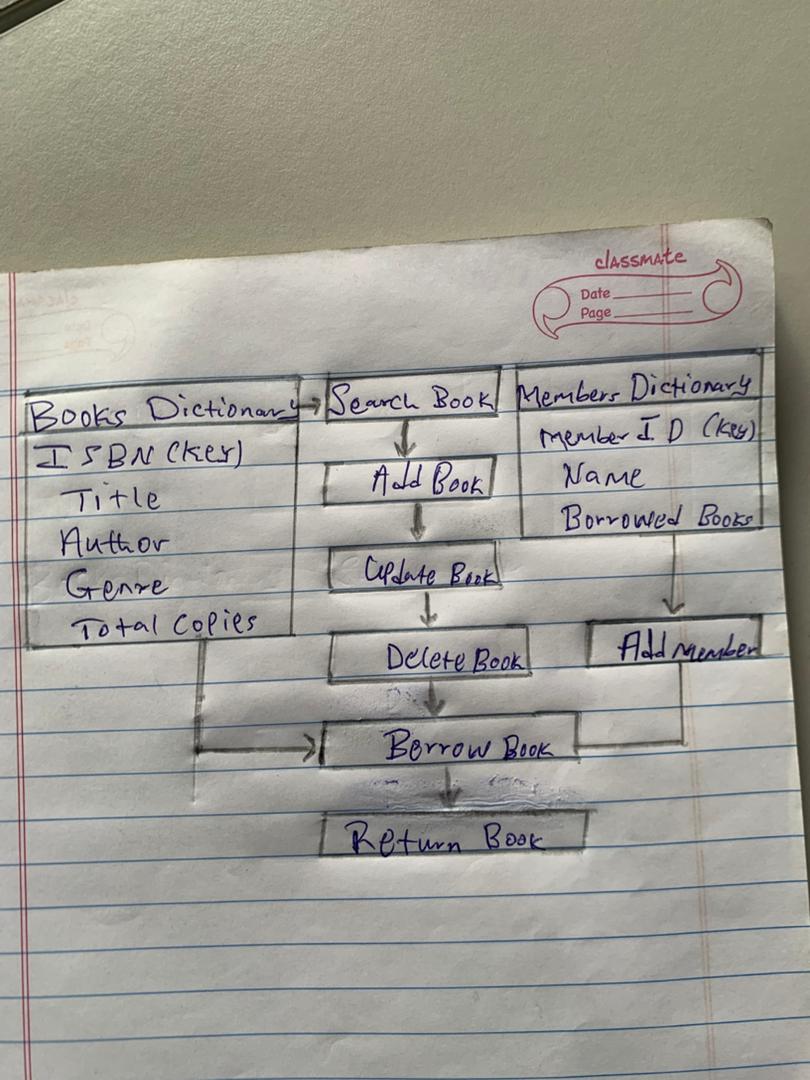 classmate
Date
Page
Books Dictionary
ISBN (Key)
Title
Author
Genre
Total Copies
Search Book
Add Book
Update Book
Delete Book
Borrow Book
Return Book
Members Dictionary
Member ID (Key)
Name
Borrowed Books
Add Member